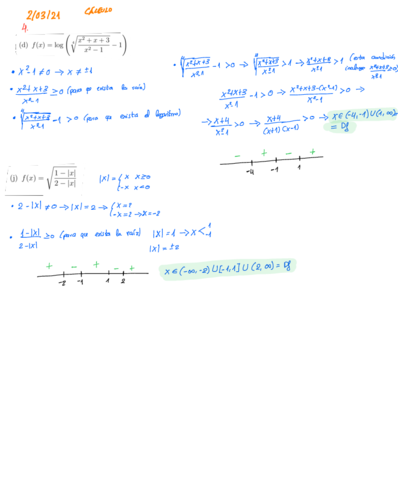 2/03/21
4.
(d) f(x) = log(⁴√((x²+x+3)/(x²−1)) − 1)
• x²−1 ≠ 0 → x ≠ ±1
• (x²+x+3)/(x²−1) ≥ 0 (para que exista la raíz)
• ⁴√((x²+x+3)/(x²−1)) − 1 > 0 (para que exista el logaritmo)
• ⁴√((x²+x+3)/(x²−1)) − 1 > 0 → ⁴√((x²+x+3)/(x²−1)) > 1 → (x²+x+3)/(x²−1) > 1 (esta condición
(x²+x+3)/(x²−1) ≥ 0)
(x²+x+3)/(x²−1) − 1 > 0 → (x²+x+3−(x²−1))/(x²−1) > 0 →
→ (x+4)/(x²−1) > 0 → (x+4)/((x+1)(x−1)) > 0 → x ∈ (−4,−1) ∪ (1,∞)
= Df
− + − +
−4 −1 1
(j) f(x) = √((1−|x|)/(2−|x|))
|x| = { x x≥0
−x x<0
• 2−|x| ≠ 0 → |x| = 2 → { x = 2
−x = 2 → x = −2
• (1−|x|)/(2−|x|) ≥ 0 (para que exista la raíz) |x| = 1 → x < 1
−1
|x| = ±2
+ − + − +
−2 −1 1 2
x ∈ (−∞,−2) ∪ [−1,1] ∪ (2,∞) = Df